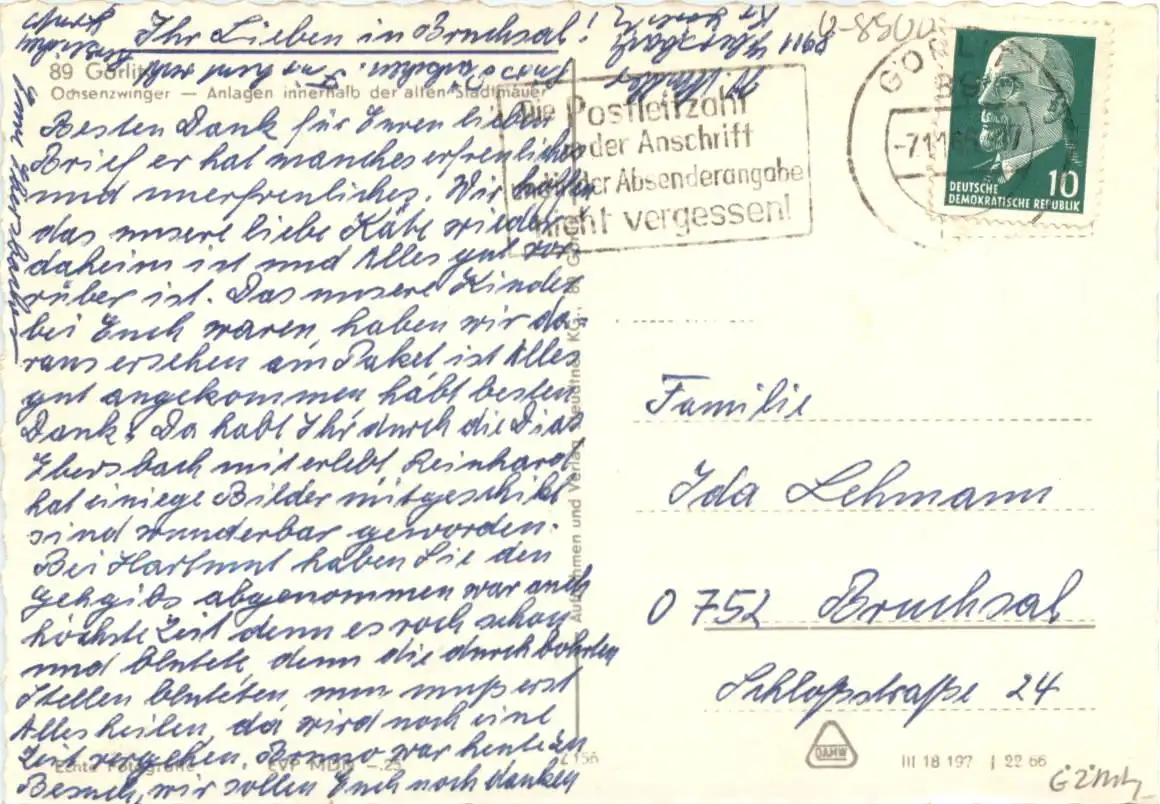 Ihr Lieben in Bruchsal!
89 Görlitz
Ochsenzwinger — Anlagen innerhalb der alten Stadtmauer
Besten Dank für Euren lieben
Brief er hat manches erfreuliches
und unerfreuliches. Wir hoffen
das unsere liebe Käte wieder
daheim ist und Alles gut vor
rüber ist. Das unsere Kinder
bei Euch waren, haben wir da-
raus ersehen am Paket ist Alles
gut angekommen habt besten
Dank. Da habt Ihr durch die Dias
Ebersbach miterlebt Reinhard
hat einiege Bilder mitgeschikt
sind wunderbar geworden.
Bei Hartmut haben Sie den
gehgibs abgenommen war auch
höchste Zeit denn es roch schon
und blutete, denn die durchbohrten
Stellen bluteten, nun muß erst
Alles heilen, da wird noch eine
Zeit vergehen. Bruno war heute zu
Besuch, wir sollen Euch noch danken
Echte Fotografie EVP MDN –.25
Z 156
Aufnahmen und Verlag
KG., 89 Gör
Die Postleitzahl
in der Anschrift
und in der Absenderangabe
nicht vergessen!
GÖRLITZ
89
-7.11.66
DEUTSCHE
DEMOKRATISCHE REPUBLIK
10
Familie
Ida Lehmann
0 752 Bruchsal
Schloßstraße 24
DAMW
III 18 197 J 22 66